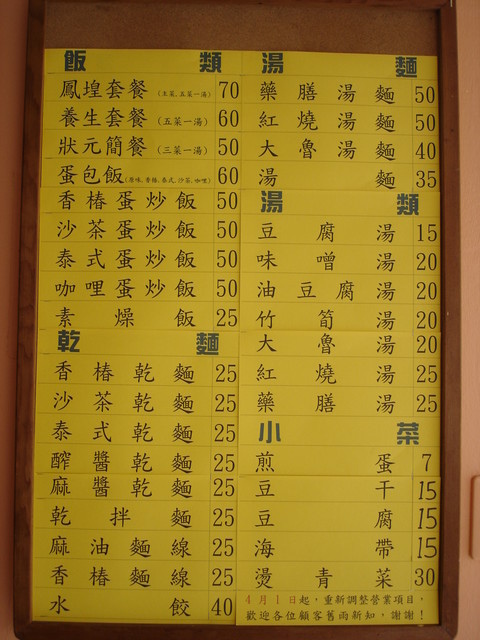 飯類
鳳堭套餐(主菜,五菜一湯) 70
養生套餐(五菜一湯) 60
狀元簡餐(三菜一湯) 50
蛋包飯(原味,香椿,泰式,沙茶,咖哩) 60
香椿蛋炒飯 50
沙茶蛋炒飯 50
泰式蛋炒飯 50
咖哩蛋炒飯 50
素燥飯 25
乾麵
香椿乾麵 25
沙茶乾麵 25
泰式乾麵 25
醡醬乾麵 25
麻醬乾麵 25
乾拌麵 25
麻油麵線 25
香椿麵線 25
水餃 40
湯麵
藥膳湯麵 50
紅燒湯麵 50
大魯湯麵 40
湯麵 35
湯類
豆腐湯 15
味噌湯 20
油豆腐湯 20
竹筍湯 20
大魯湯 20
紅燒湯 25
藥膳湯 25
小菜
煎蛋 7
豆干 15
豆腐 15
海帶 15
燙青菜 30
4月1日起,重新調整營業項目,
歡迎各位顧客舊雨新知,謝謝!